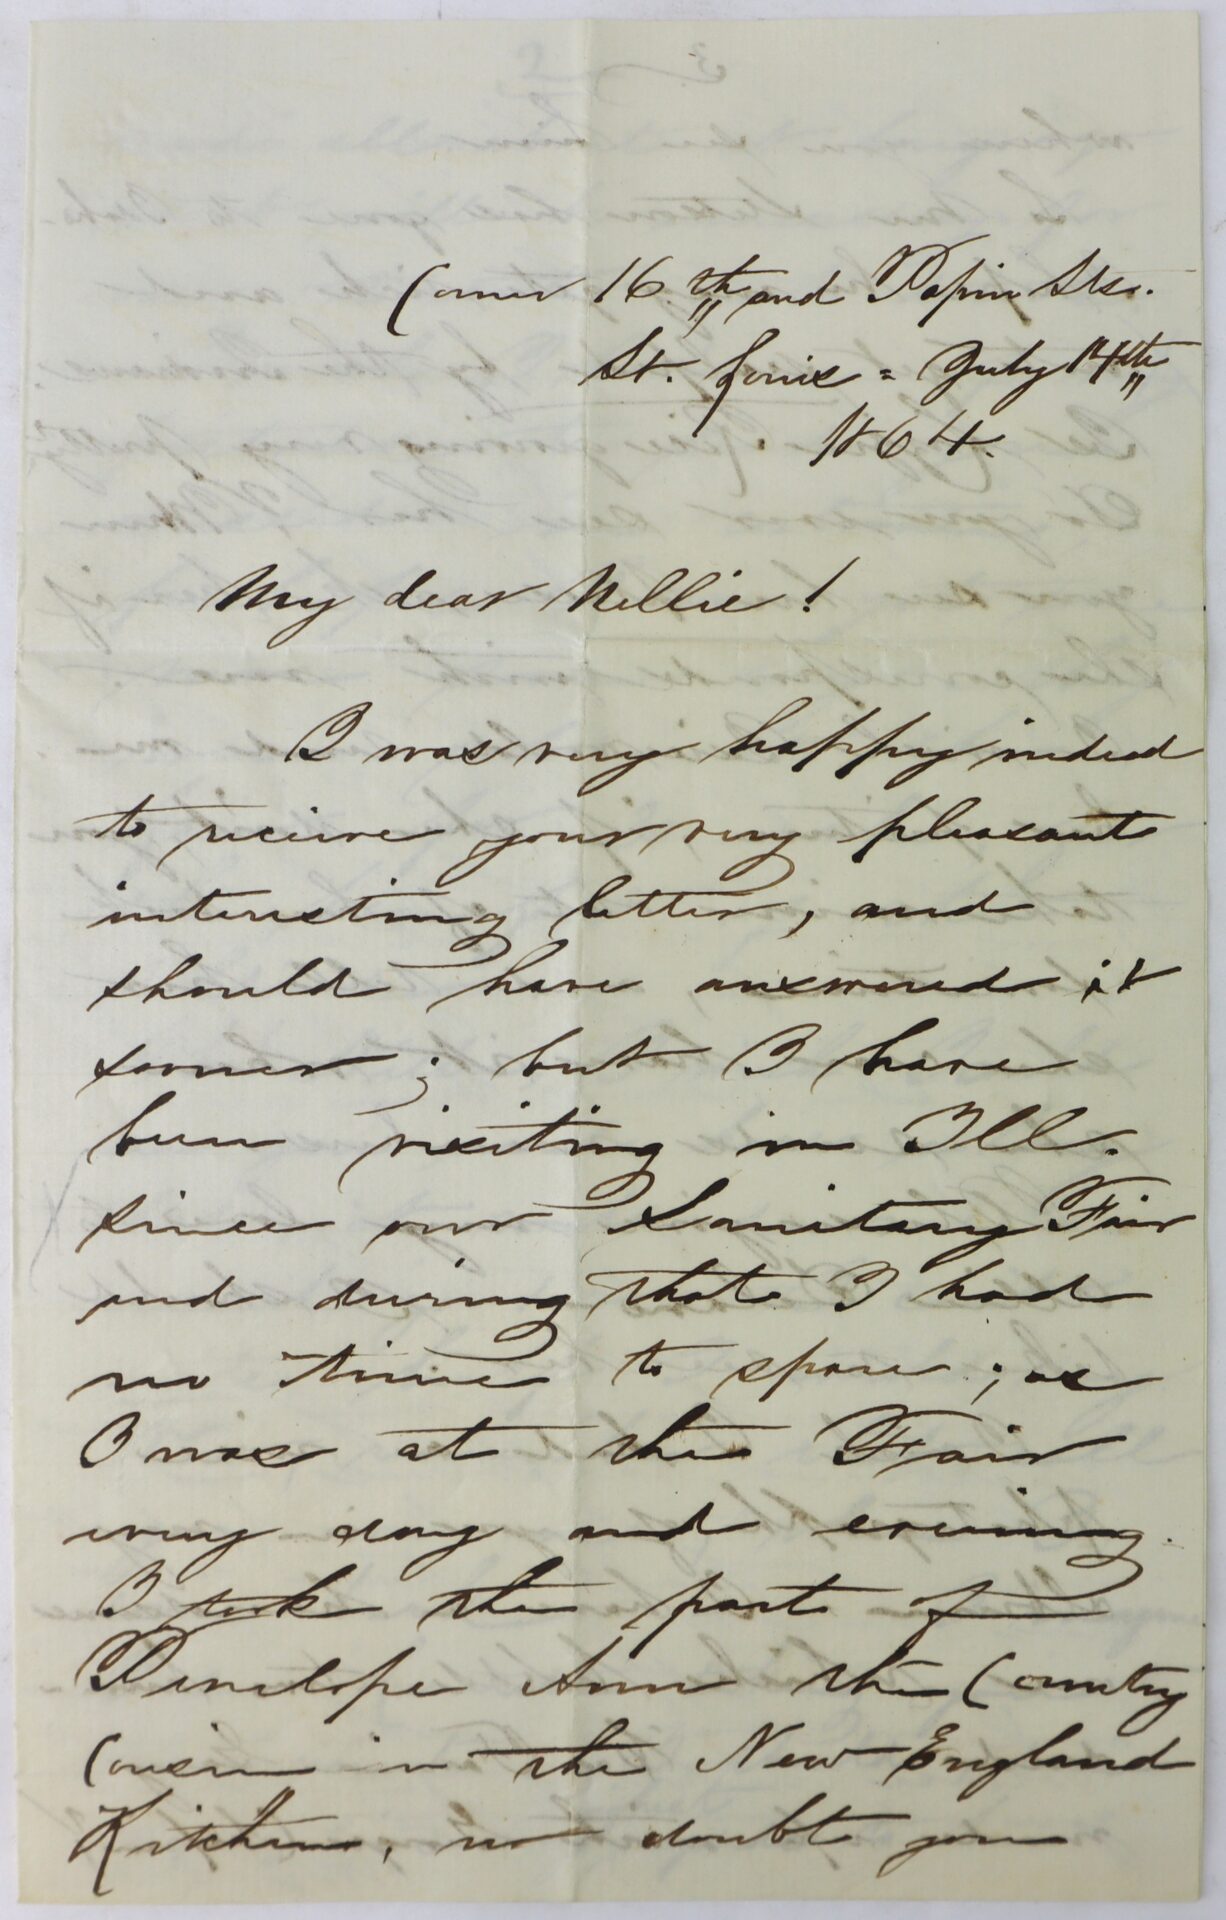 Corner 16th and Papin Sts.
St. Louis = July 14th
1864.
My dear Nellie!
I was very happy indeed
to recieve your very pleasant
interesting letter, and
should have answered it
sooner; but I have
been visiting in Ill.
since our Sanitary Fair
and during that I had
no time to spare; as
I was at the Fair
every day and evening.
I took the part of
Penelope Ann the Country
Cousin in the New England
Kitchen, no doubt you